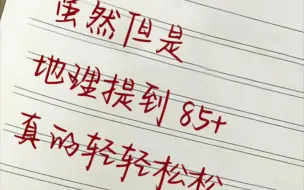 虽然但是
地理提到85+
真的轻轻松松